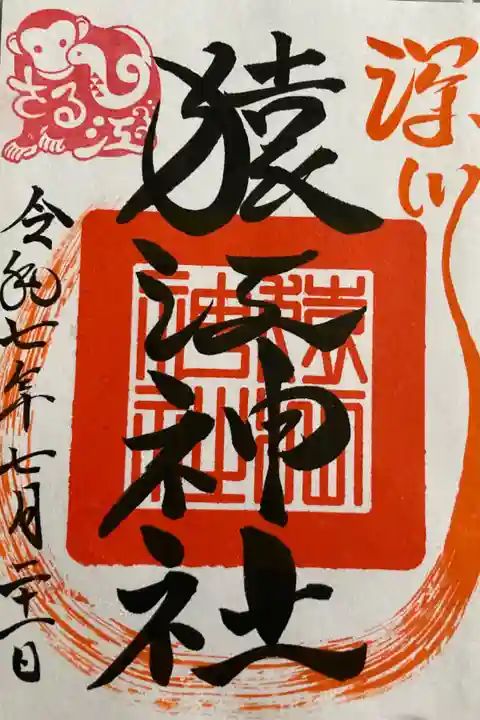 深川
猿江神社
猿江
神社
さる江
令和七年七月二十一日